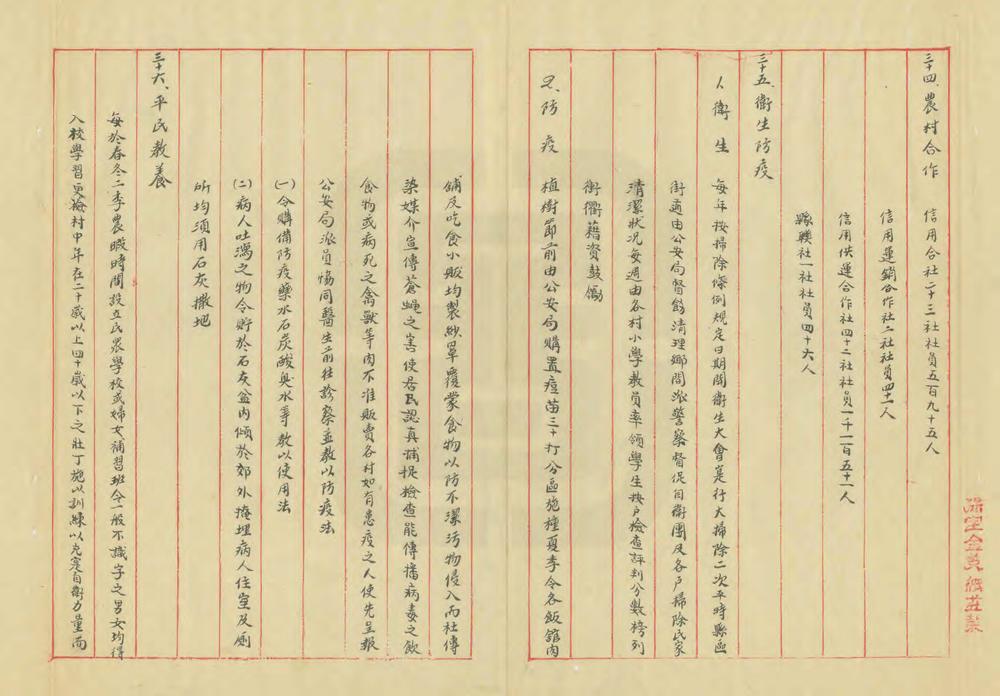 三十四、農村合作　信用合社二十三社社員五百九十五人
信用運銷合作社二社社員四十一人
信用供運合作社四十二社社員一千一百五十一人
聯社一社社員四十六人
三十五、衛生防疫
1、衛生　每年按掃除條例規定日期開衛生大會並行大掃除二次平時縣區
街道由公安局督飭清理鄉間派警察督促自衛團及各戶掃除民家
清潔狀況每週由各村小學教員率領學生按戶檢查評判分數榜列
街衢藉資鼓勵
2、防疫　植樹節前由公安局購置痘苗三十打分區施種夏季令各飯館肉
舖及吃食小販均製紗罩覆蒙食物以防不潔污物侵入而杜傳
染媒介宣傳蒼蠅之害使居民認真捕捉檢查能傳播病毒之飲
食物或病死之禽獸等肉不准販賣各村如有患疫之人使先呈報
公安局派員協同醫生前往診察並教以防疫法
(一)令購備防疫藥水石炭酸臭水等教以使用法
(二)病人吐瀉之物令貯於石灰盆內傾於郊外掩埋病人住室及廁
所均須用石灰撒地
三十六、平民教養
每於春冬二季農暇時間設立民眾學校或婦女補習班令一般不識字之男女均得
入校學習更檢村中年在二十歲以上四十歲以下之壯丁施以訓練以充實自衛力量而